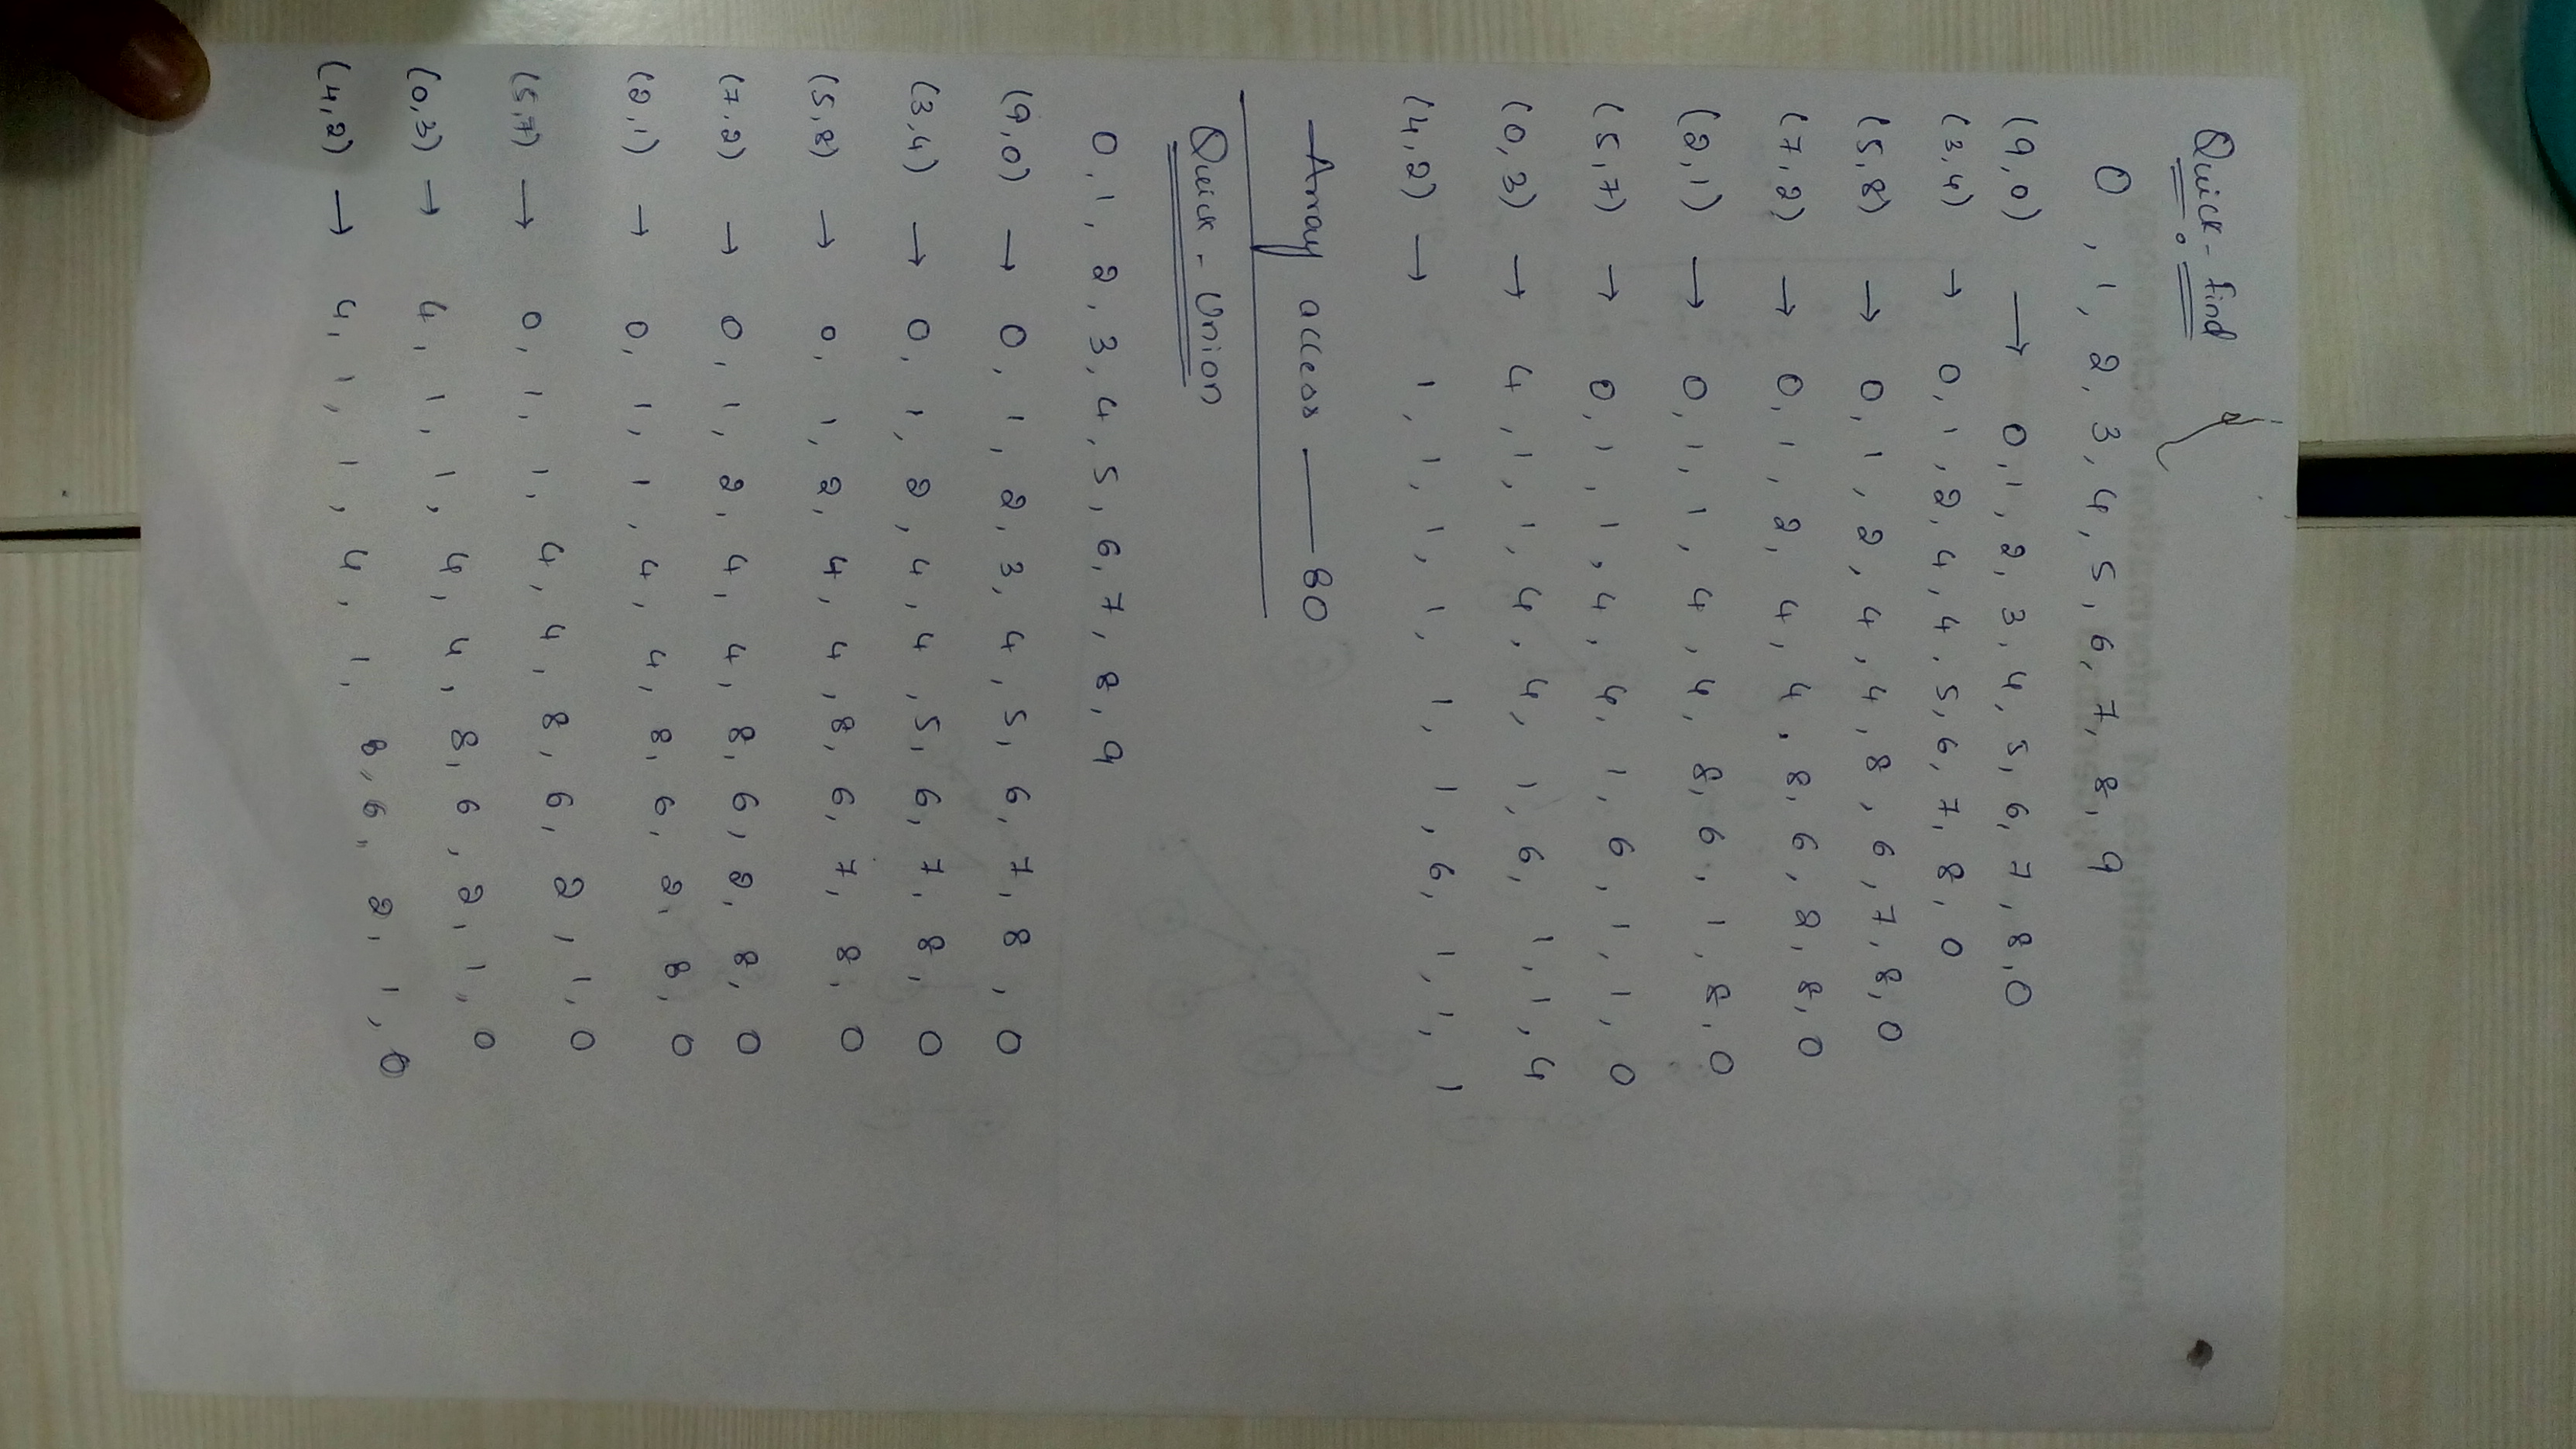 Quick-find
0, 1, 2, 3, 4, 5, 6, 7, 8, 9
(9,0) → 0, 1, 2, 3, 4, 5, 6, 7, 8, 0
(3,4) → 0, 1, 2, 4, 4, 5, 6, 7, 8, 0
(5,8) → 0, 1, 2, 4, 4, 8, 6, 7, 8, 0
(7,2) → 0, 1, 2, 4, 4, 8, 6, 2, 8, 0
(2,1) → 0, 1, 1, 4, 4, 8, 6, 1, 8, 0
(5,7) → 0, 1, 1, 4, 4, 1, 6, 1, 1, 0
(0,3) → 4, 1, 1, 4, 4, 1, 6, 1, 1, 4
(4,2) → 1, 1, 1, 1, 1, 1, 6, 1, 1, 1
Array access — 80
Quick-Union
0, 1, 2, 3, 4, 5, 6, 7, 8, 9
(9,0) → 0, 1, 2, 3, 4, 5, 6, 7, 8, 0
(3,4) → 0, 1, 2, 4, 4, 5, 6, 7, 8, 0
(5,8) → 0, 1, 2, 4, 4, 8, 6, 7, 8, 0
(7,2) → 0, 1, 2, 4, 4, 8, 6, 2, 8, 0
(2,1) → 0, 1, 1, 4, 4, 8, 6, 2, 8, 0
(5,7) → 0, 1, 1, 4, 4, 8, 6, 2, 1, 0
(0,3) → 4, 1, 1, 4, 4, 8, 6, 2, 1, 0
(4,2) → 4, 1, 1, 4, 1, 8, 6, 2, 1, 0